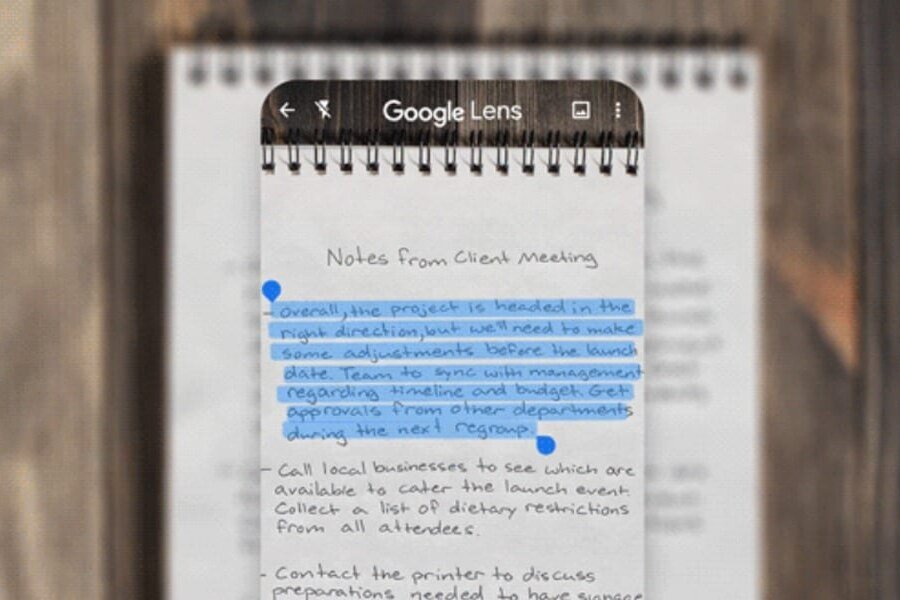 Google Lens
Notes from Client Meeting
- Overall, the project is headed in the
right direction, but we'll need to make
some adjustments before the launch
date. Team to sync with management
regarding timeline and budget. Get
approvals from other departments
during the next regroup.
- Call local businesses to see which are
available to cater the launch event.
Collect a list of dietary restrictions
from all attendees.
- Contact the printer to discuss
preparations needed to have signage